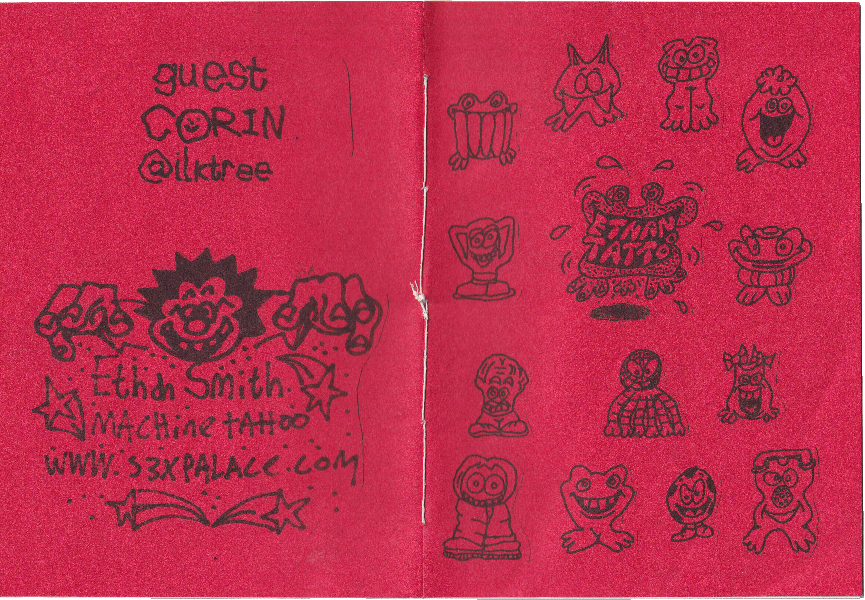 guest
CORIN
@ilktree
Ethan Smith
MACHine tATTOO
WWW.S3XPALACE.COM
ETHAN
TATTO